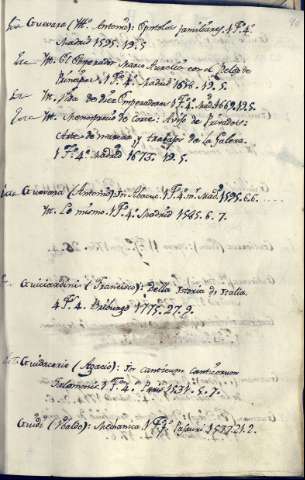 Guevara (Yll.º Antonio): Epistolas familiares. 1 t. 4.º
Madrid 1595. 19. 5
Yt. El Emperador Marco Aurelio con el Relox de
Principes. 1 t. 4.º Madrid 1658. 19. 5.
Yt. Vida de diez Emperadores 1 t. 4.º Mad. 1669. 19. 5.
Yt. Menosprecio de Corte: Aviso de Privados:
Arte de marear y trabajos de la Galera.
1 t. 4.º Madrid 1673. 19. 5.
Guevara (Antonio): In Abacuc. 1 t. 4.º Mad. 1595. 6. 6.
Yt. Lo mismo. 1 t. 4.º Madrid 1585. 6. 7.
Guicciardini (Francisco): della Istoria di Italia.
4 t. 4. Friburgo 1775. 27. 9.
Guidacerie (Agacio): In Canticum Canticorum
Salomonis 1 t. 4.º Paris 1531. 5. 7.
Guidi (Ubaldo): Mechanica. 1 t. f.º Pisauri 1577. 21. 2.